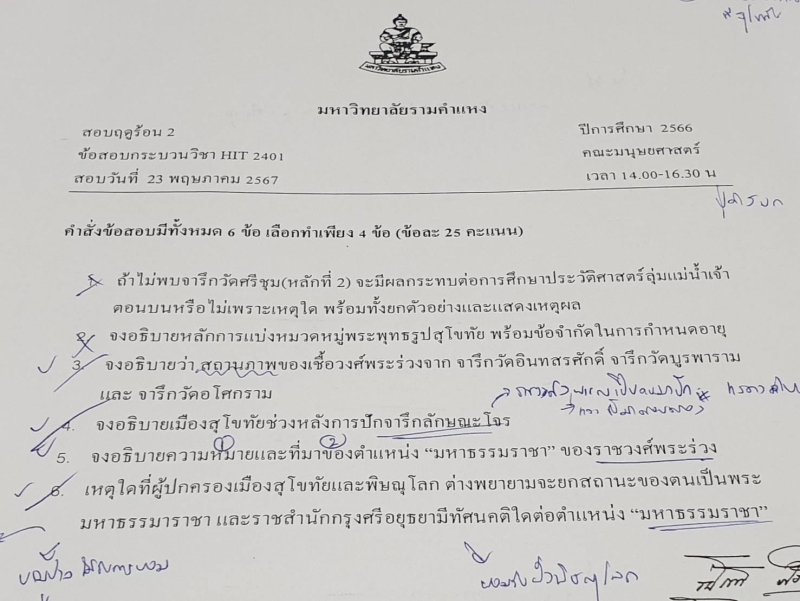 มหาวิทยาลัยรามคำแหง
มหาวิทยาลัยรามคำแหง
สอบฤดูร้อน 2
ปีการศึกษา 2566
ข้อสอบกระบวนวิชา HIT 2401
คณะมนุษยศาสตร์
สอบวันที่ 23 พฤษภาคม 2567
เวลา 14.00-16.30 น
คำสั่งข้อสอบมีทั้งหมด 6 ข้อ เลือกทำเพียง 4 ข้อ (ข้อละ 25 คะแนน)
1. ถ้าไม่พบจารึกวัดศรีชุม(หลักที่ 2) จะมีผลกระทบต่อการศึกษาประวัติศาสตร์ลุ่มแม่น้ำเจ้า
ตอนบนหรือไม่เพราะเหตุใด พร้อมทั้งยกตัวอย่างและแสดงเหตุผล
2. จงอธิบายหลักการแบ่งหมวดหมู่พระพุทธรูปสุโขทัย พร้อมข้อจำกัดในการกำหนดอายุ
3. จงอธิบายว่า สถานภาพของเชื้อวงศ์พระร่วงจาก จารึกวัดอินทสรศักดิ์ จารึกวัดบูรพาราม
และ จารึกวัดอโศการาม
4. จงอธิบายเมืองสุโขทัยช่วงหลังการปักจารึกลักษณะโจร
1 2
5. จงอธิบายความหมายและที่มาของตำแหน่ง “มหาธรรมราชา” ของราชวงศ์พระร่วง
6. เหตุใดที่ผู้ปกครองเมืองสุโขทัยและพิษณุโลก ต่างพยายามจะยกสถานะของตนเป็นพระ
มหาธรรมาราชา และราชสำนักกรุงศรีอยุธยามีทัศนคติใดต่อตำแหน่ง “มหาธรรมราชา”